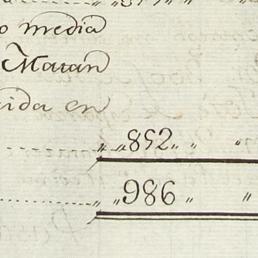 o media
Matan
ida en
,, ,,852,, ,,
,, 986 ,, ,,